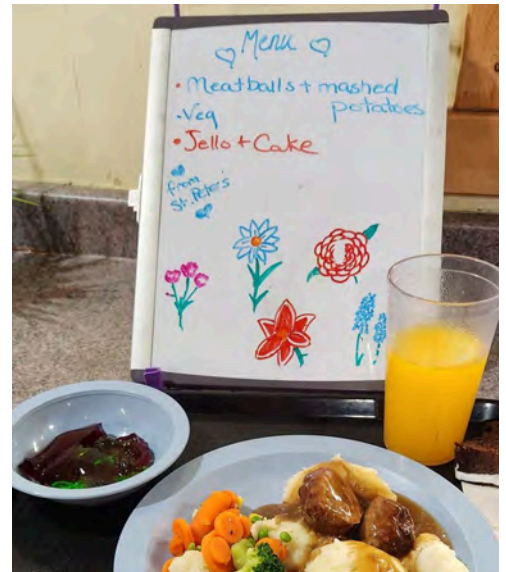 Menu
• Meatballs + mashed
potatoes
• Veg
• Jello + Cake
from
St. Peter's